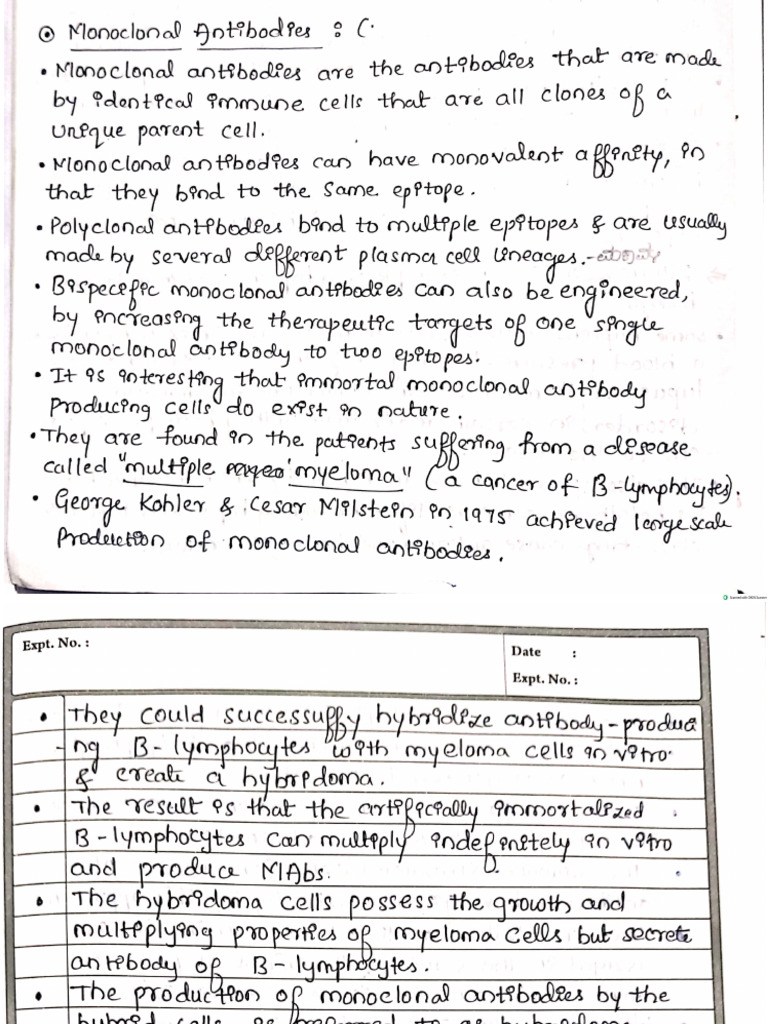 Monoclonal Antibodies : (
• Monoclonal antibodies are the antibodies that are made
by identical immune cells that are all clones of a
unique parent cell.
• Monoclonal antibodies can have monovalent affinity, in
that they bind to the same epitope.
• Polyclonal antibodies bind to multiple epitopes & are usually
made by several different plasma cell lineages.-
• Bispecefic monoclonal antibodies can also be engineered,
by increasing the therapeutic targets of one single
monoclonal antibody to two epitopes.
• It is interesting that immortal monoclonal antibody
producing cells do exist in nature.
• They are found in the patients suffering from a disease
called "multiple myeloma" (a cancer of B-lymphocytes).
• George Kohler & Cesar Milstein in 1975 achieved large scale
Production of monoclonal antibodies.
Expt. No. :
Date :
Expt. No. :
• They could successuffy hybridize antibody-produci
-ng B-lymphocytes with myeloma cells in vitro
& create a hybridoma.
• The result is that the artificially immortalized
B-lymphocytes can multiply indefinitely in vitro
and produce MAbs.
• The hybridoma cells possess the growth and
multiplying properties of myeloma cells but secrete
antibody of B-lymphocytes.
• The production of monoclonal antibodies by the